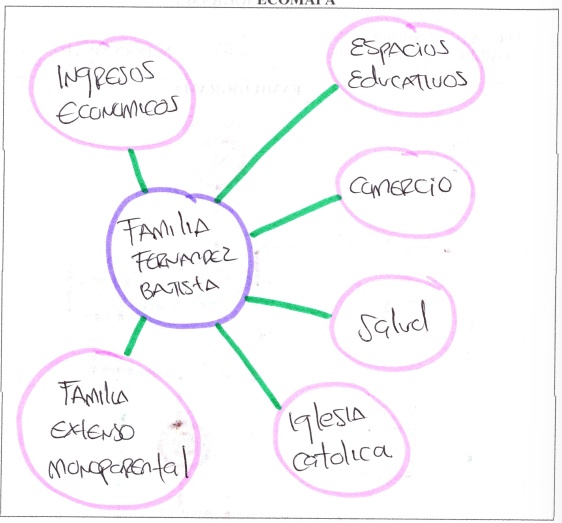 ECOMAPA
INGRESOS
ECONOMICOS
ESPACIOS
EDUCATIVOS
COMERCIO
FAMILIA
FERNANDEZ
BATISTA
Salud
FAMILIA
EXTENSO
MONOPARENtal
IglESIA
CATOLICA